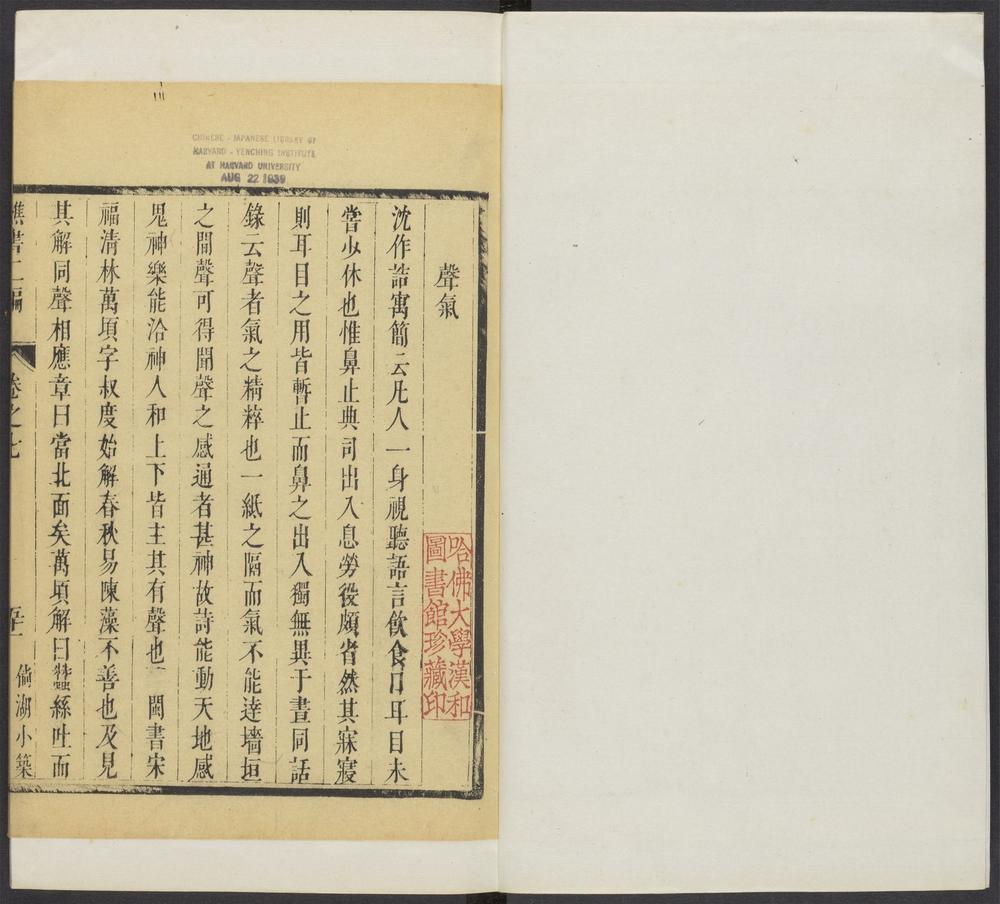 CHINESE - JAPANESE LIBRARY OF
HARVARD - YENCHING INSTITUTE
AT HARVARD UNIVERSITY
AUG 22 1939
哈佛大學漢和
圖書館珍藏印
聲氣
沈作喆寓簡云凡人一身視聽語言飲食口耳目未
嘗少休也惟鼻止典司出入息勞役頗省然其寐寢
則耳目之用皆暫止而鼻之出入獨無異于晝同話
錄云聲者氣之精粹也一紙之隔而氣不能達墻垣
之間聲可得聞聲之感通者甚神故詩能動天地感
鬼神樂能洽神人和上下皆主其有聲也 閩書宋
福清林萬頃字叔度始解春秋易陳藻不善也及見
其解同聲相應章曰當北面矣萬頃解曰蠶絲吐而
樵書二編
卷之七
倘湖小築